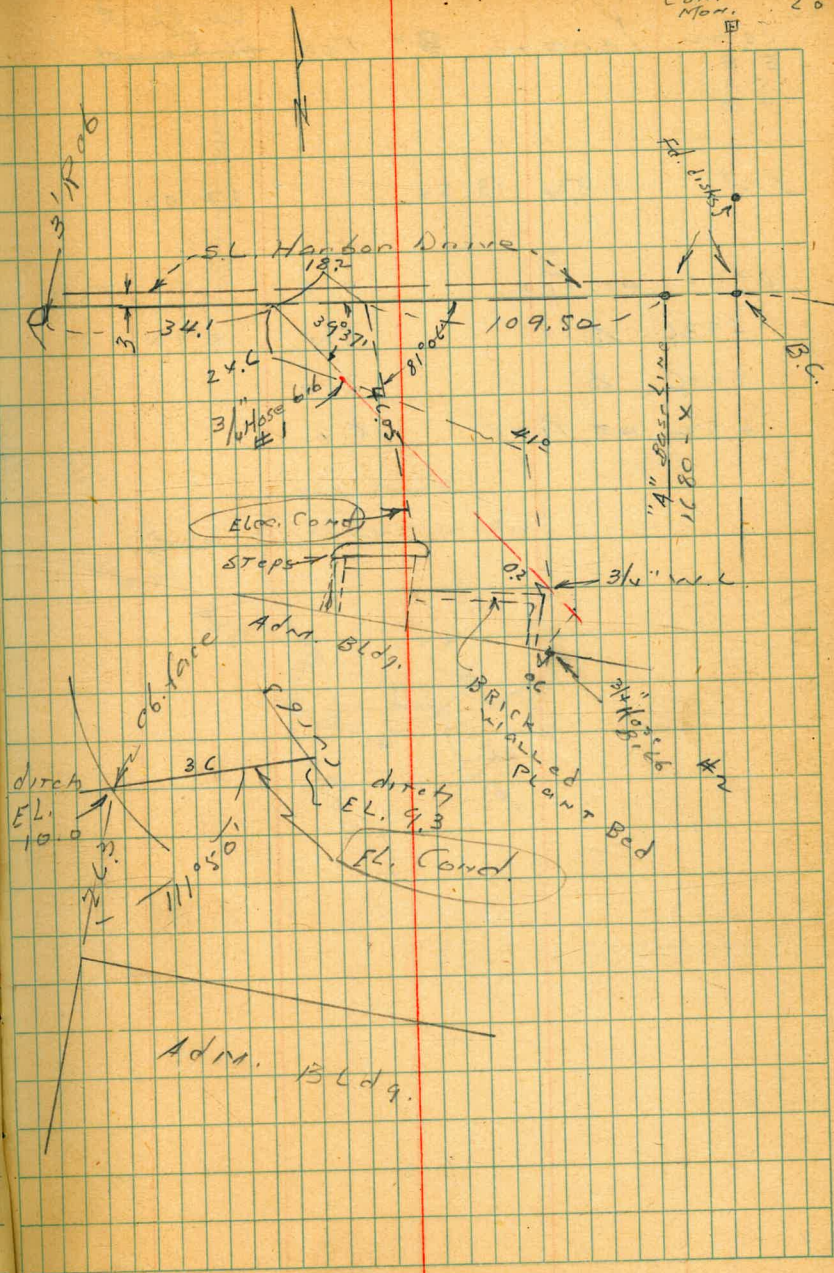 Mon.
N
Fd. disks
S.L. Harbor Drive
18.2
34.1
39°37'
109.50
3
81°06'
B.C.
3/4" Hose bib
#1
"A" Base Line
1680-X
Elec. Cond
Steps
0.2
3/4" W.L
Adm. Bldg.
0.6
3/4" Hose
Bib
#2
BRICK
WALLED
PLANT Bed
cb. face
36
ditch
EL.
10.0
ditch
EL. 9.3
EL. Cond.
126.3
111°50'
Adm. Bldg.